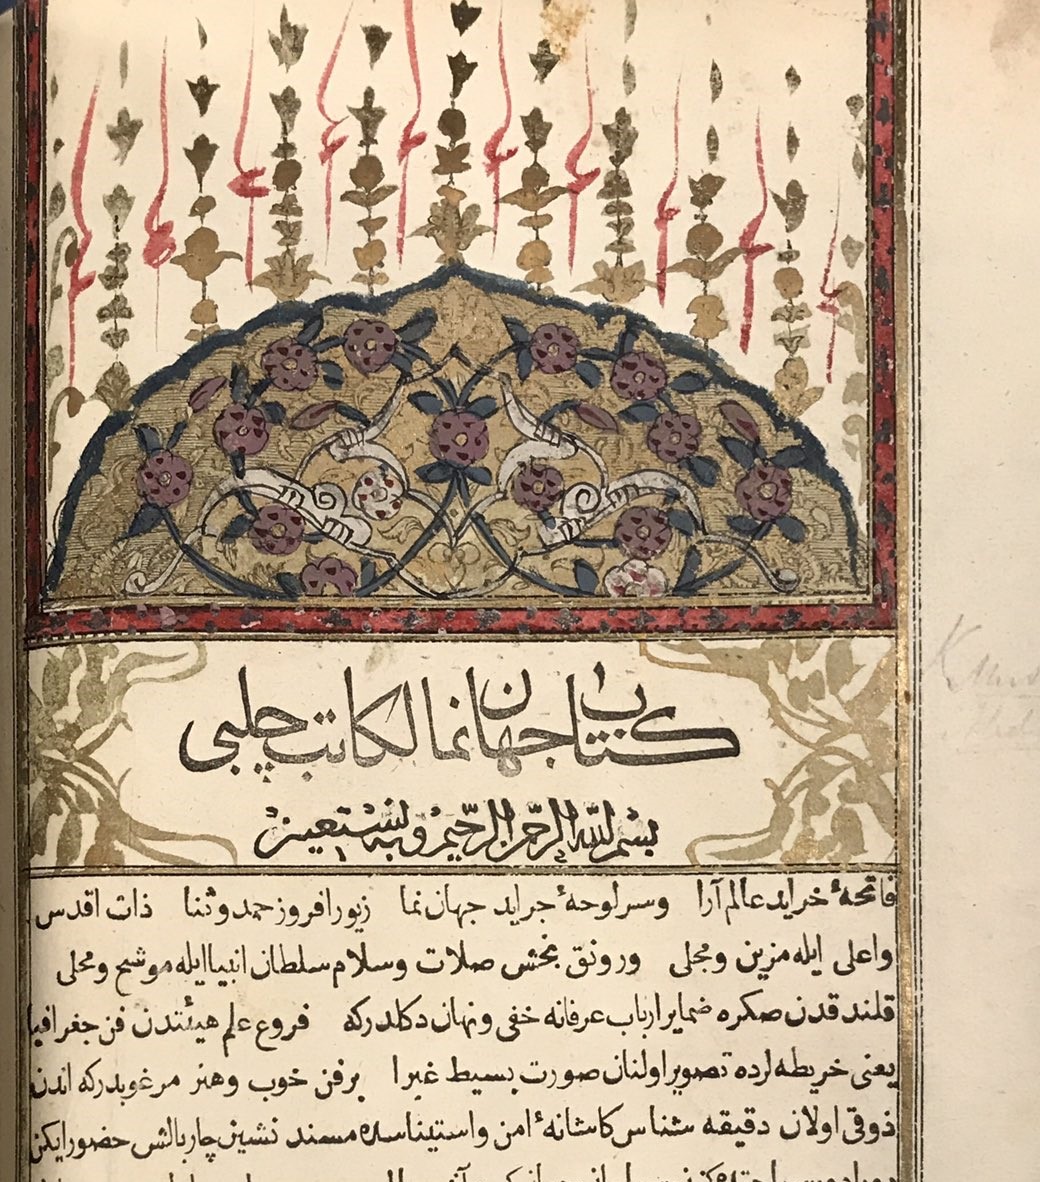 كتاب جهان نما لكاتب چلبي
بسم الله الرحمن الرحيم وبه نستعين
فاتحهٔ خرايد عالم آرا وسرلوحهٔ جرايد جهان نما زيور افروز حمد وثنا ذات اقدس
واعلى ايله مزين ومجلى ورونق بخش صلات وسلام سلطان انبيا ايله موشح ومحلى
قلندقدن صكره ضماير ارباب عرفانه خفى ونهان دكلدركه فروع علم هيئتدن فن جغرافيا
يعنى خريطه لرده تصوير اولنان صورت بسيط غبرا برفن خوب وهنر مرغوبدركه اندن
ذوقى اولان دقيقه شناس كاشانهٔ امن واستيناسده مسند نشين چاربالش حضور ايكن